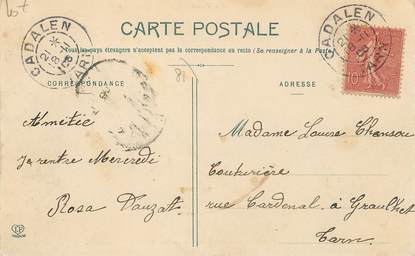 607
CARTE POSTALE
Tous les pays étrangers n'acceptent pas la correspondance au recto (Se renseigner à la Poste)
CADALEN
TARN
CADALEN
TARN
10
81
CORRESPONDANCE
ADRESSE
Amitié
Je rentre Mercredi
Rosa Dauzat
Madame Louise Chanson
Couturière
rue Cardenal à Graulhet
Tarn